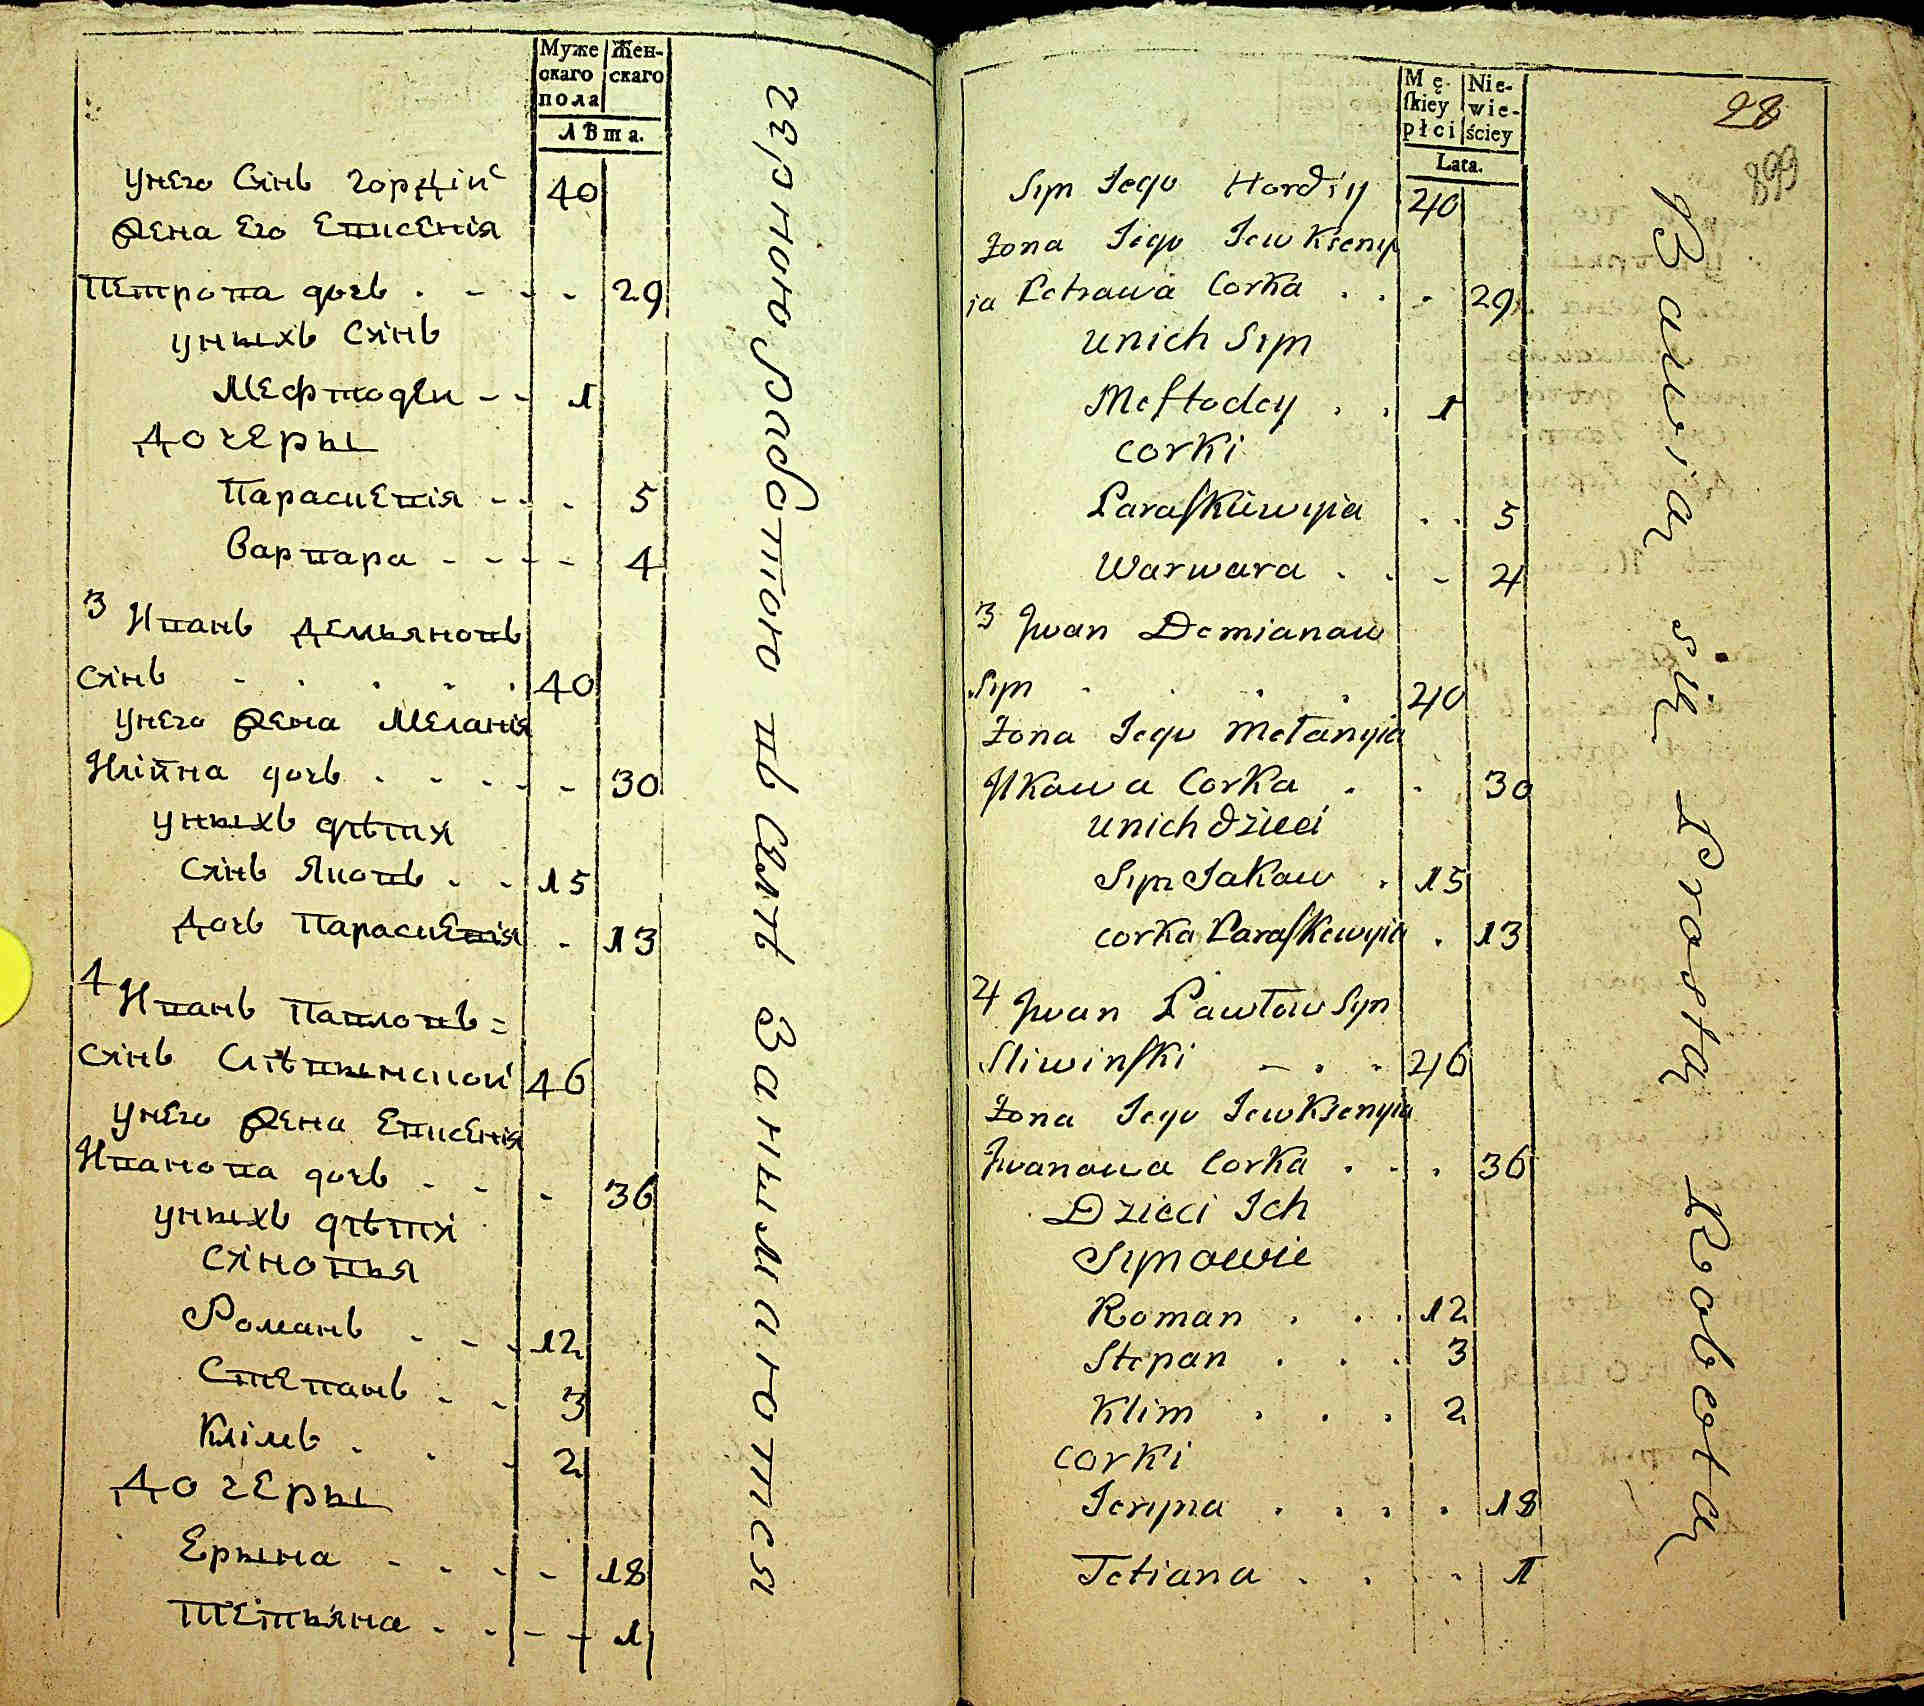 Муже
скаго
пола
Жен-
скаго
Лѣта.
унего Сынъ Гордій
жена Его Евксенія 40
Петрова дочь . - - - 29
унихъ Сынъ
Мефтодѣй - - 1
дочеры
Параскевія - - - 5
Варвара - - - - 4
3 Иванъ Демьяновъ
Сынъ - . . . . 40
унего жена Меланія
Илкина дочь . - - - - 30
унихъ дѣти
Сынъ Яковъ . - 15
дочь Параскевія - 13
4 Иванъ Павловъ =
Сынъ Слѣвинской 46
унего жена Евксенія
Иванова дочь - - - - 36
унихъ дѣти
Сыновья
Романъ - - - 12
Степанъ - - 3
Клімъ - . - 2
дочеры
Ерына - - - - 18
Тетьяна - - - - 1
черною работою въ Селѣ занымаются
Męſkiey
płci
Nie-
wie-
ściey
Lata.
28
899
Syn Iego Hordiy 40
Żona Iego Jewkseny
ia Petrawa Corka . . . 29
unich Syn
Meftodey . . 1
corki
Paraſkiewyia . . 5
Warwara . . - 4
3 Jwan Demianaw
Syn - . . . 40
Żona Iego Mełanyia
Jlkowa Corka . . 30
unich dzieci
Syn Jakaw . 15
corka Paraſkewyia . 13
4 Jwan Pawłow Syn
Sliwinſki - . . 46
Żona Iego Jewksenyia
Jwanowa Corka . - . 36
Dzieci Ich
Synowie
Roman . . . 12
Stepan . . . 3
Klim . . . 2
corki
Jeryna . . . . 18
Tetiana . . . - 1
Bawią się Prostą Robotą